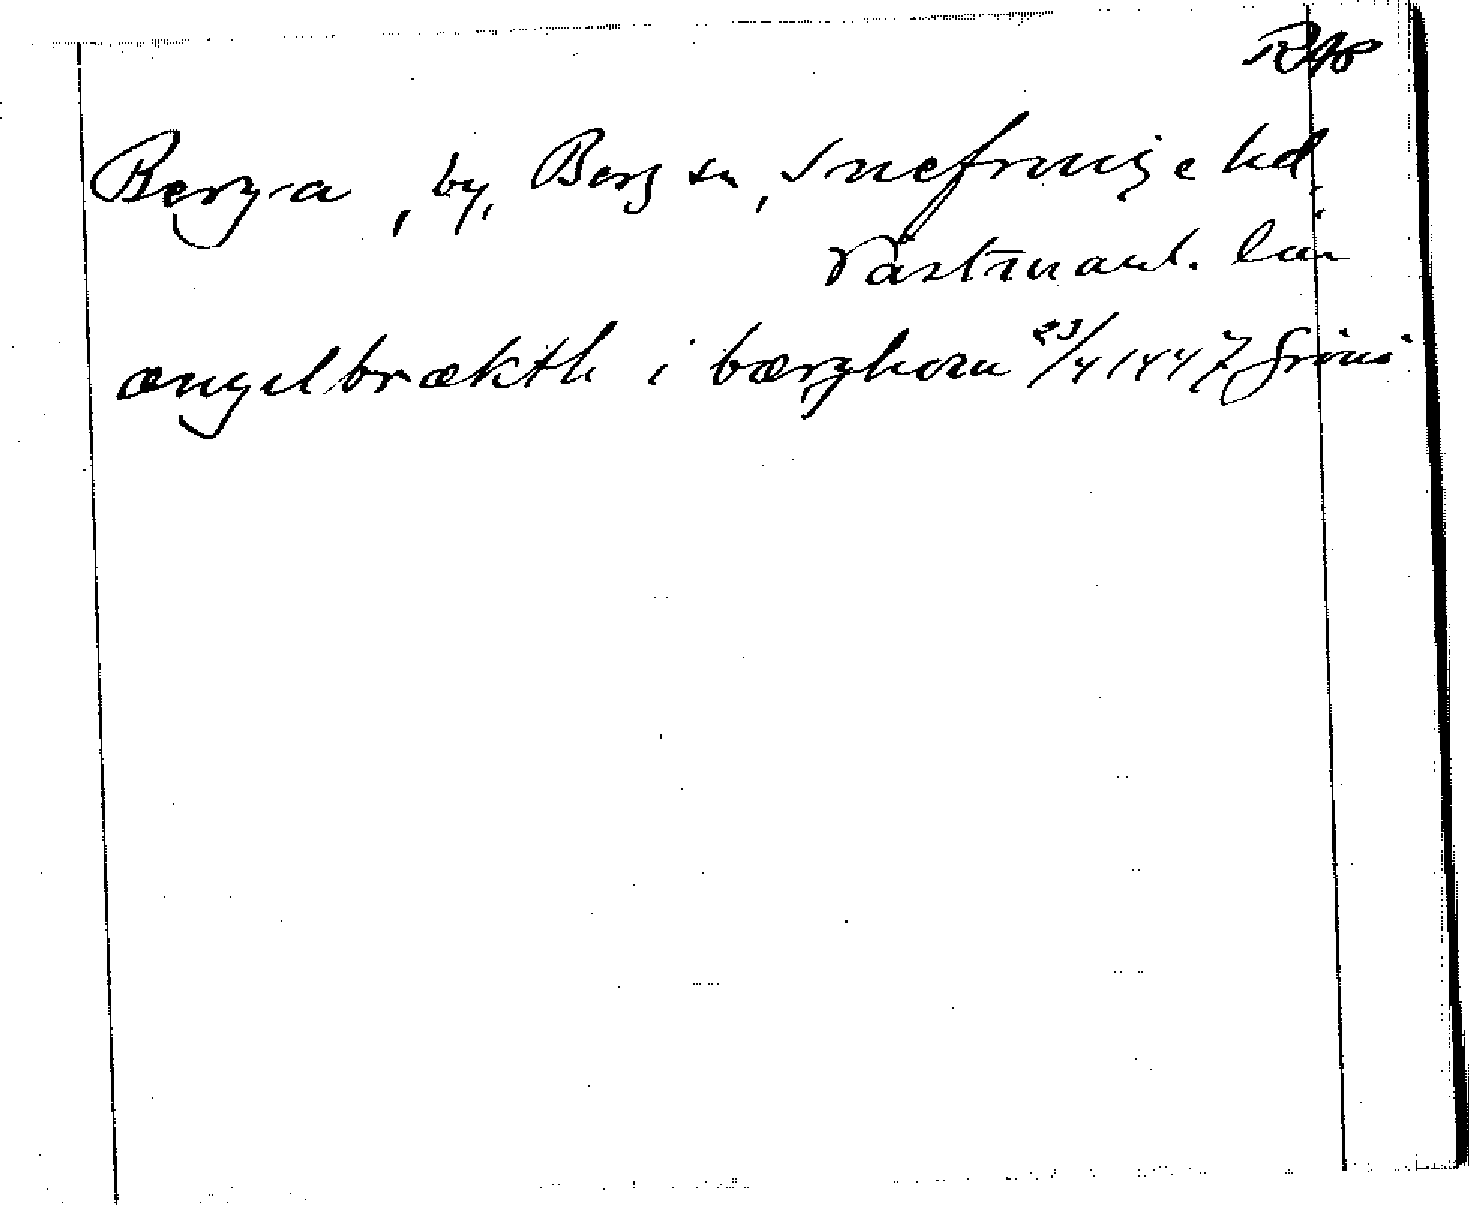 Berga, by, Berg sn, Snefringe hd.
Västmanl. län
ængelbrækth i bærghom 23/4 1447 Gröns